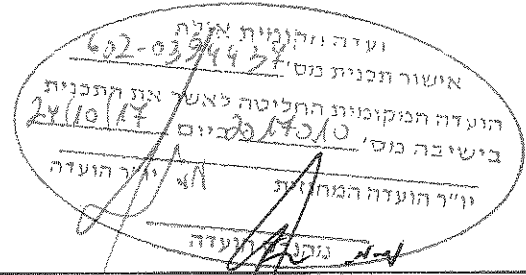 ועדה מקומית אילת
אישור תכנית מס' 602-0394437
הועדה המקומית החליטה לאשר את התכנית
בישיבה מס' 2017010 ביום 24/10/17
יו"ר הועדה
יו"ר הועדה המחוזית
הועדה